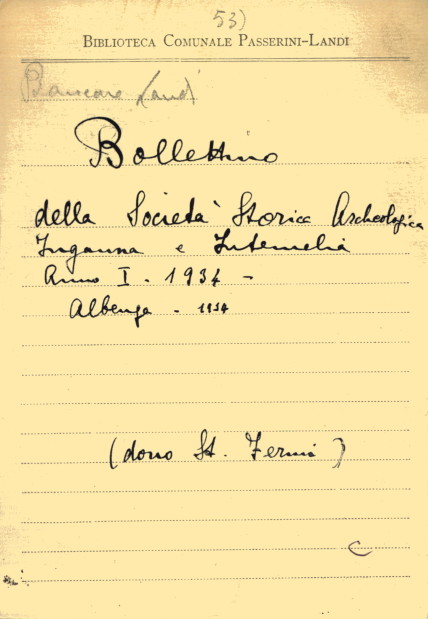 53)
BIBLIOTECA COMUNALE PASSERINI-LANDI
Landi
Bollettino
della Società Storica Archeologica
Ingauna e Intemelia
Anno I. 1934 -
Albenga - 1934
(dono St. Fermi)
C